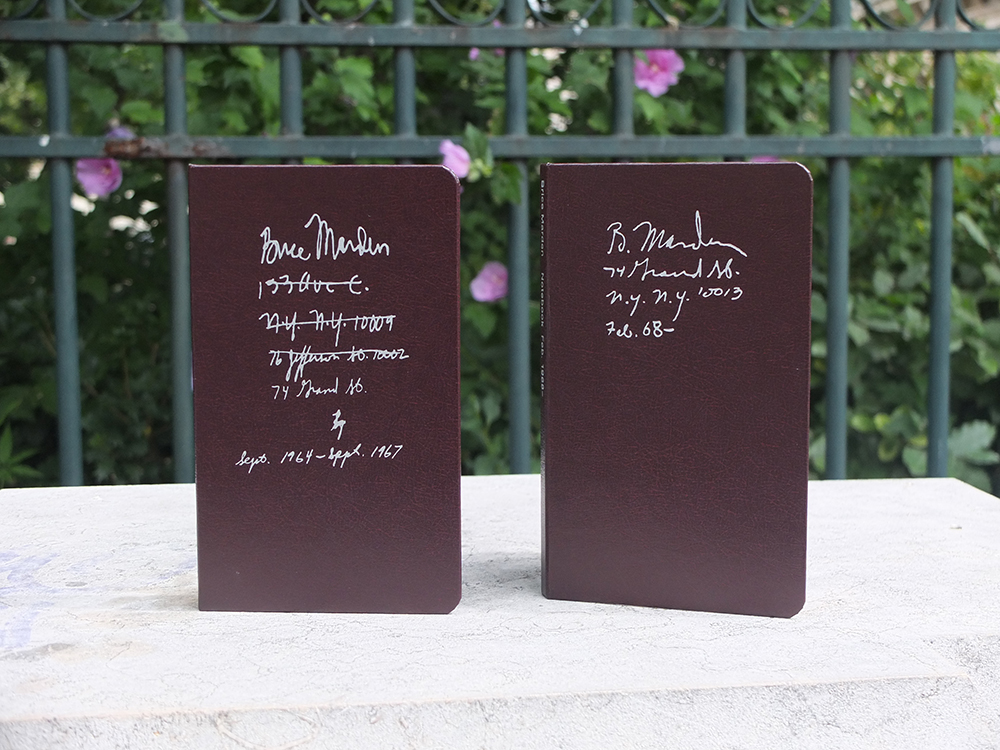 Brice Marden
Ave C.
N.Y. N.Y. 10009
76 Jefferson St. 10002
74 Grand St.
Sept. 1964 – Sept. 1967
Brice Marden Notebook Feb. 1968–
B. Marden
74 Grand St.
N.Y. N.Y. 10013
Feb. 68–